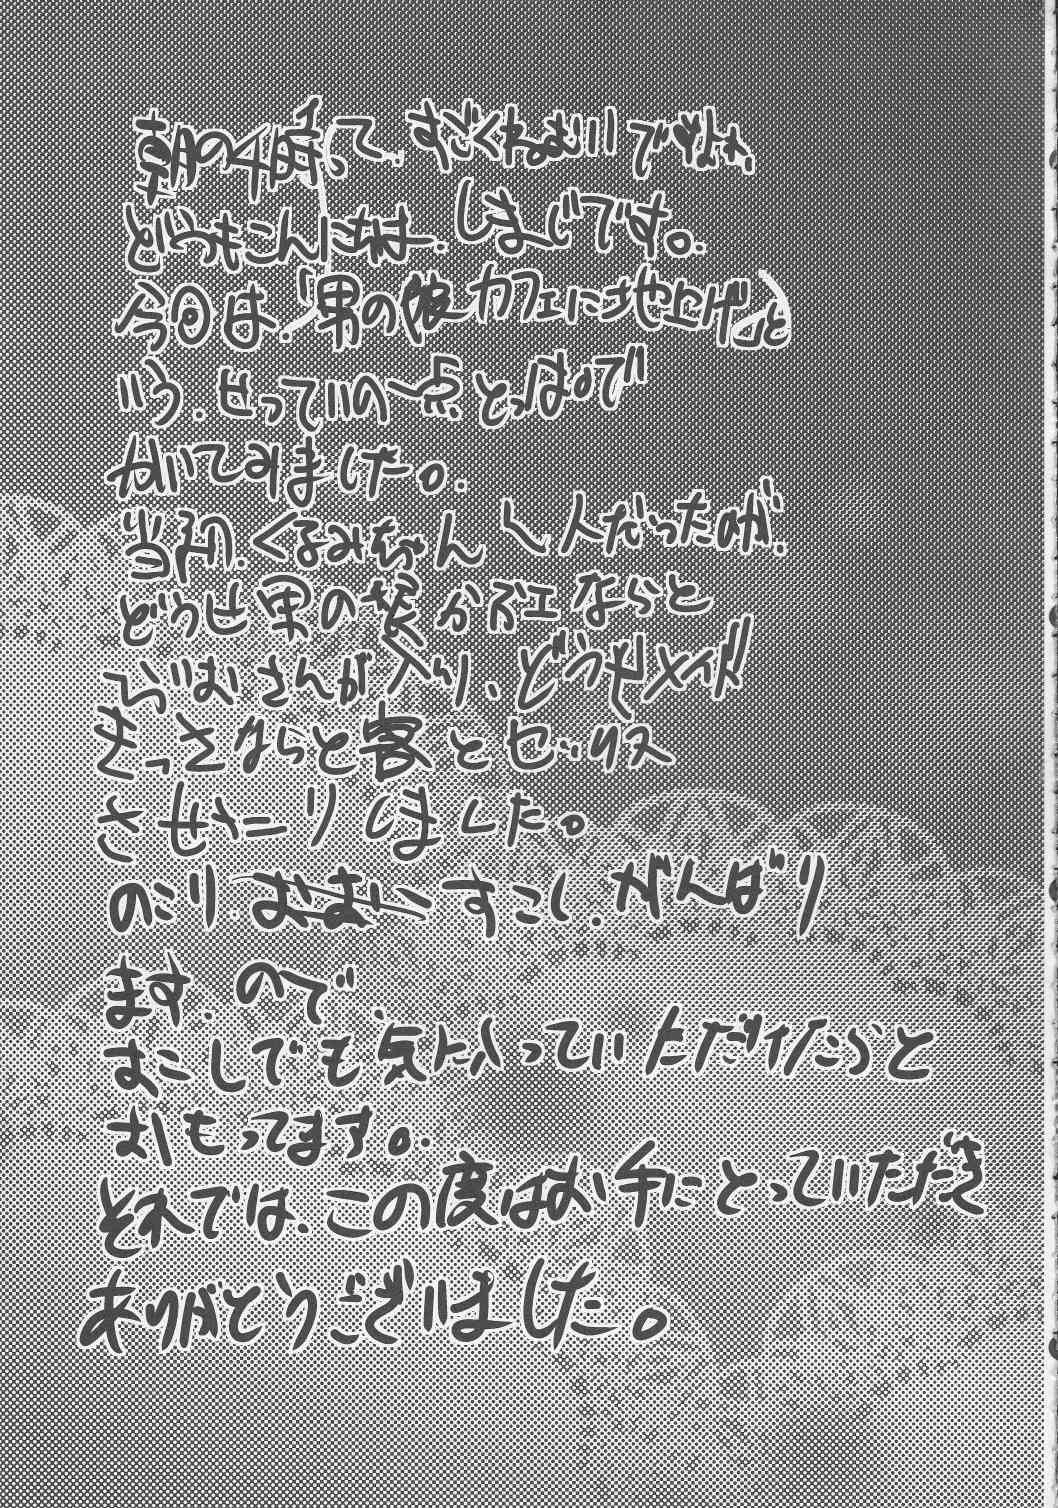 朝の4時って、すごくねむいですよね、
どうもこんにちは、しまじです。
今回は、「男の娘カフェに地上げ」と
いう、せっていの一点とっぱで
かいてみました。
当初、くるみちゃん1人だったのが、
どうせ男の娘かふェならと
らいおさんが入り、どうせメイド
きっさならと客とセックス
させたりしました。
のこり、すこし、がんばり
ます。ので、
おこしでも気に入っていただけたらと
おもってます。
それでは、この度はお手にとっていただき
ありがとうございました。